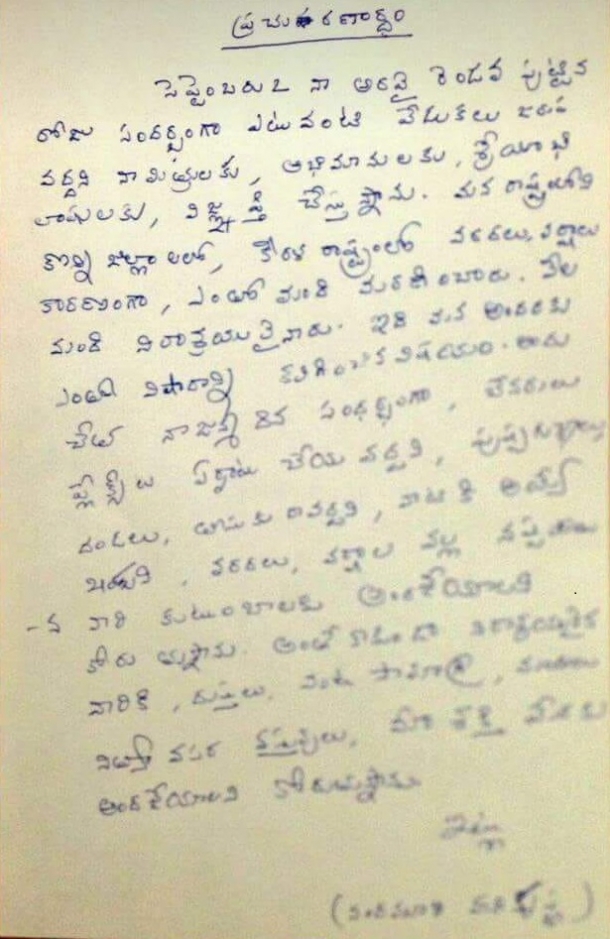 ప్రచురణార్థం
సెప్టెంబరు 2 నా అరవై రెండవ పుట్టిన
రోజు సందర్భంగా ఎటువంటి వేడుకలు జరుప
వద్దని నా మిత్రులకు, అభిమానులకు, శ్రేయోభి
లాషులకు, విజ్ఞప్తి చేస్తున్నాను. మన రాష్ట్రంలోని
కొన్ని జిల్లాలలో, కేరళ రాష్ట్రంలో వరదలు, వర్షాలు
కారణంగా, ఎంతో మంది మరణించారు. వేల
మంది నిరాశ్రయులైనారు. ఇది మన అందరకు
ఎంతో విషాదాన్ని కలిగించిన విషయం. అందు
చేత నా జన్మదిన సందర్భంగా, బేనరులు
ఫ్లెక్సీలు ఏర్పాటు చేయవద్దని, పుష్పగుచ్ఛాలు,
దండలు, తీసుకు రావద్దని, వాటికి అయ్యే
ఖర్చుని, వరదలు, వర్షాల వల్ల నష్టపోయి
-న వారి కుటుంబాలకు అందజేయాలని
కోరుతున్నాను. అంతే కాకుండా నిరాశ్రయులైన
వారికి, దుస్తులు, వంట సామాగ్రి,
నిత్యావసర వస్తువులు, మీ శక్తి మేరకు
అందజేయాలని కోరుతున్నాను
ఇట్లు
(నందమూరి హరికృష్ణ)